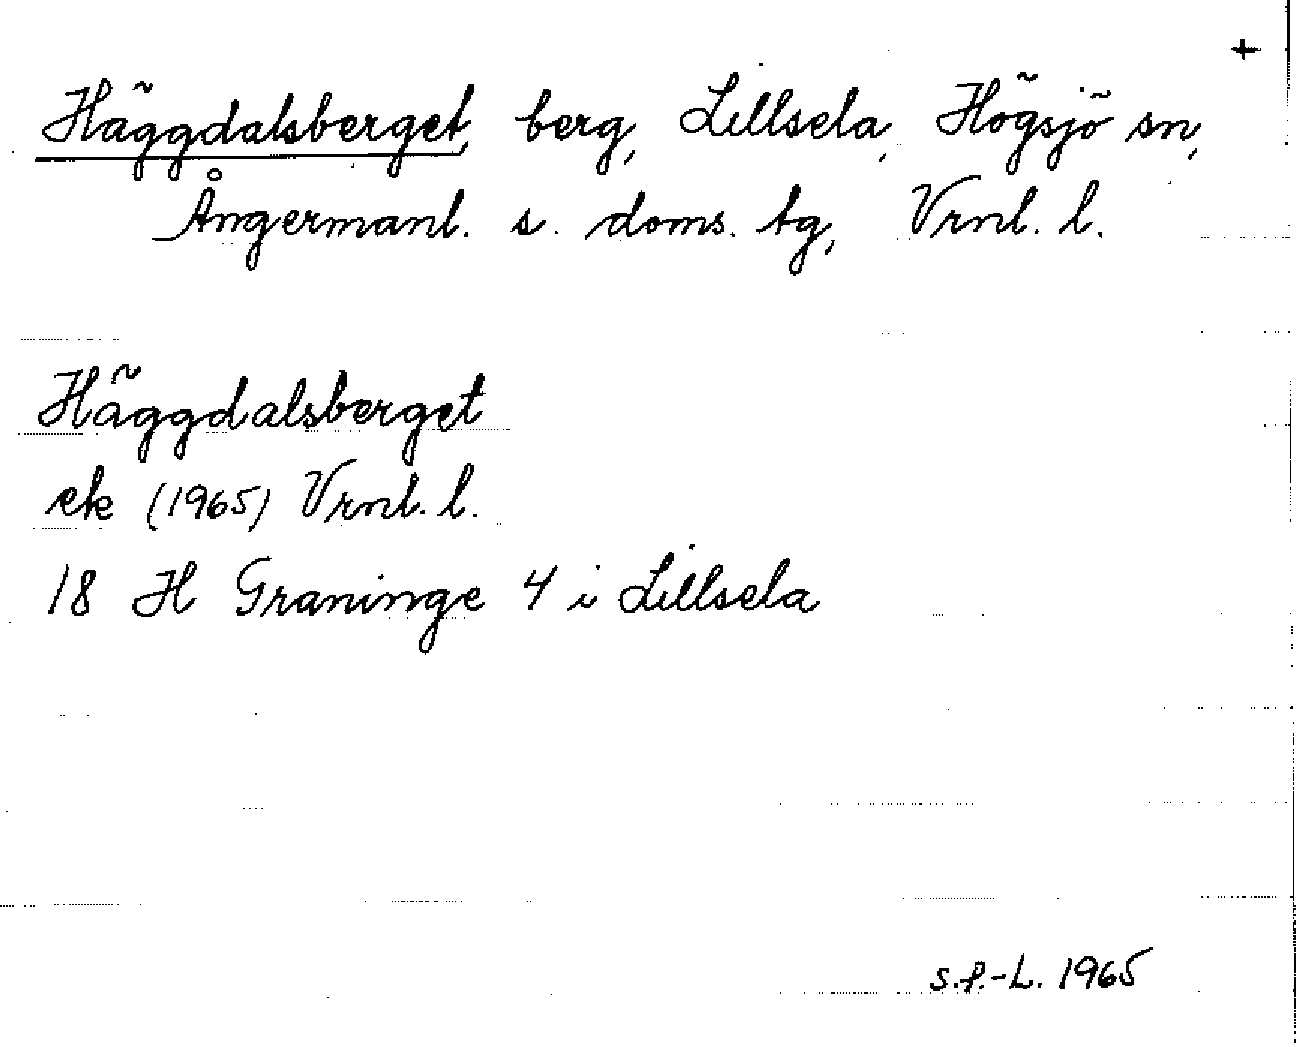 +
Häggdalsberget, berg, Lillsela, Högsjö sn,
Ångermanl. s. doms. tg, Vrnl. l.
Häggdalsberget
ek (1965) Vrnl. l.
18 H Graninge 4 i Lillsela
S.P.-L. 1965